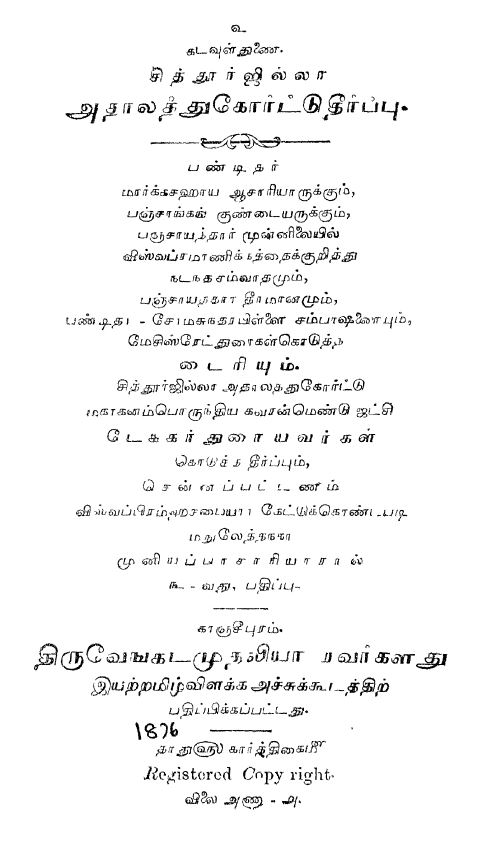 உ
கடவுள்துணை.
சித்தூர்ஜில்லா
அதாலத்துகோர்ட்டுதீர்ப்பு.
பண்டிதர்
மார்க்கசஹாய ஆசாரியாருக்கும்,
பஞ்சாங்கங் குண்டையருக்கும்,
பஞ்சாயத்தார் முன்னிலையில்
விஸ்வப்ரமாணிக்கத்தைக்குறித்து
நடந்தசம்வாதமும்,
பஞ்சாயத்தார் தீர்மானமும்,
பண்டிதர் - சோமசுந்தரபிள்ளை சம்பாஷணையும்,
மேசிஸ்ரேட்துரைகள்கொடுத்த
டைரியும்.
சித்தூர்ஜில்லா அதாலத்துகோர்ட்டு
மகாகனம்பொருந்திய கவரன்மெண்டு ஜட்சி
டேககர் துரையவர்கள்
கொடுத்த தீர்ப்பும்,
சென்னப்பட்டணம்
விஸ்வப்பிரம்ஹசபையார் கேட்டுக்கொண்டபடி
முனியப்பாசாரியாரால்
௩ - வது, பதிப்பு-
காஞ்சீபுரம்.
திருவேங்கடமுதலியா ரவர்களது
இயற்றமிழ்விளக்க அச்சுக்கூடத்திற்
பதிப்பிக்கப்பட்டது.
1876
தாது௵ கார்த்திகை௴
Registered Copy right.
விலை அணா - அ.